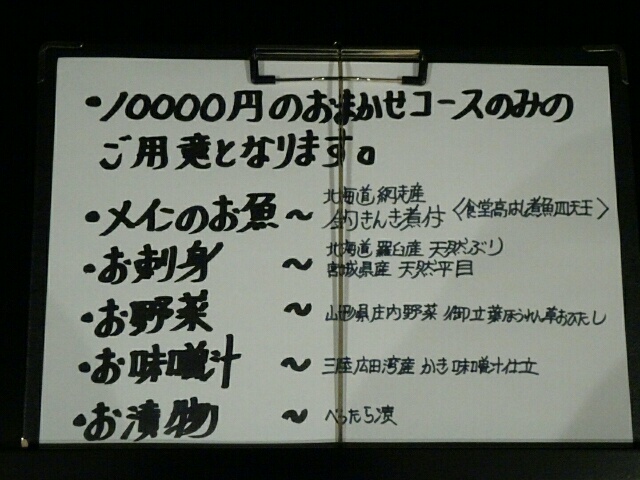 ・10000円のおまかせコースのみの
ご用意となります。
・メインのお魚 〜 北海道 網走産
釣きんき煮付〈食堂高はし煮魚四天王〉
・お刺身 〜 北海道 羅臼産 天然ぶり
宮城県産 天然平目
・お野菜 〜 山形県庄内野菜 御立葉ほうれん草おひたし
・お味噌汁 〜 三陸広田湾産 かき味噌汁仕立
・お漬物 〜 べったら漬